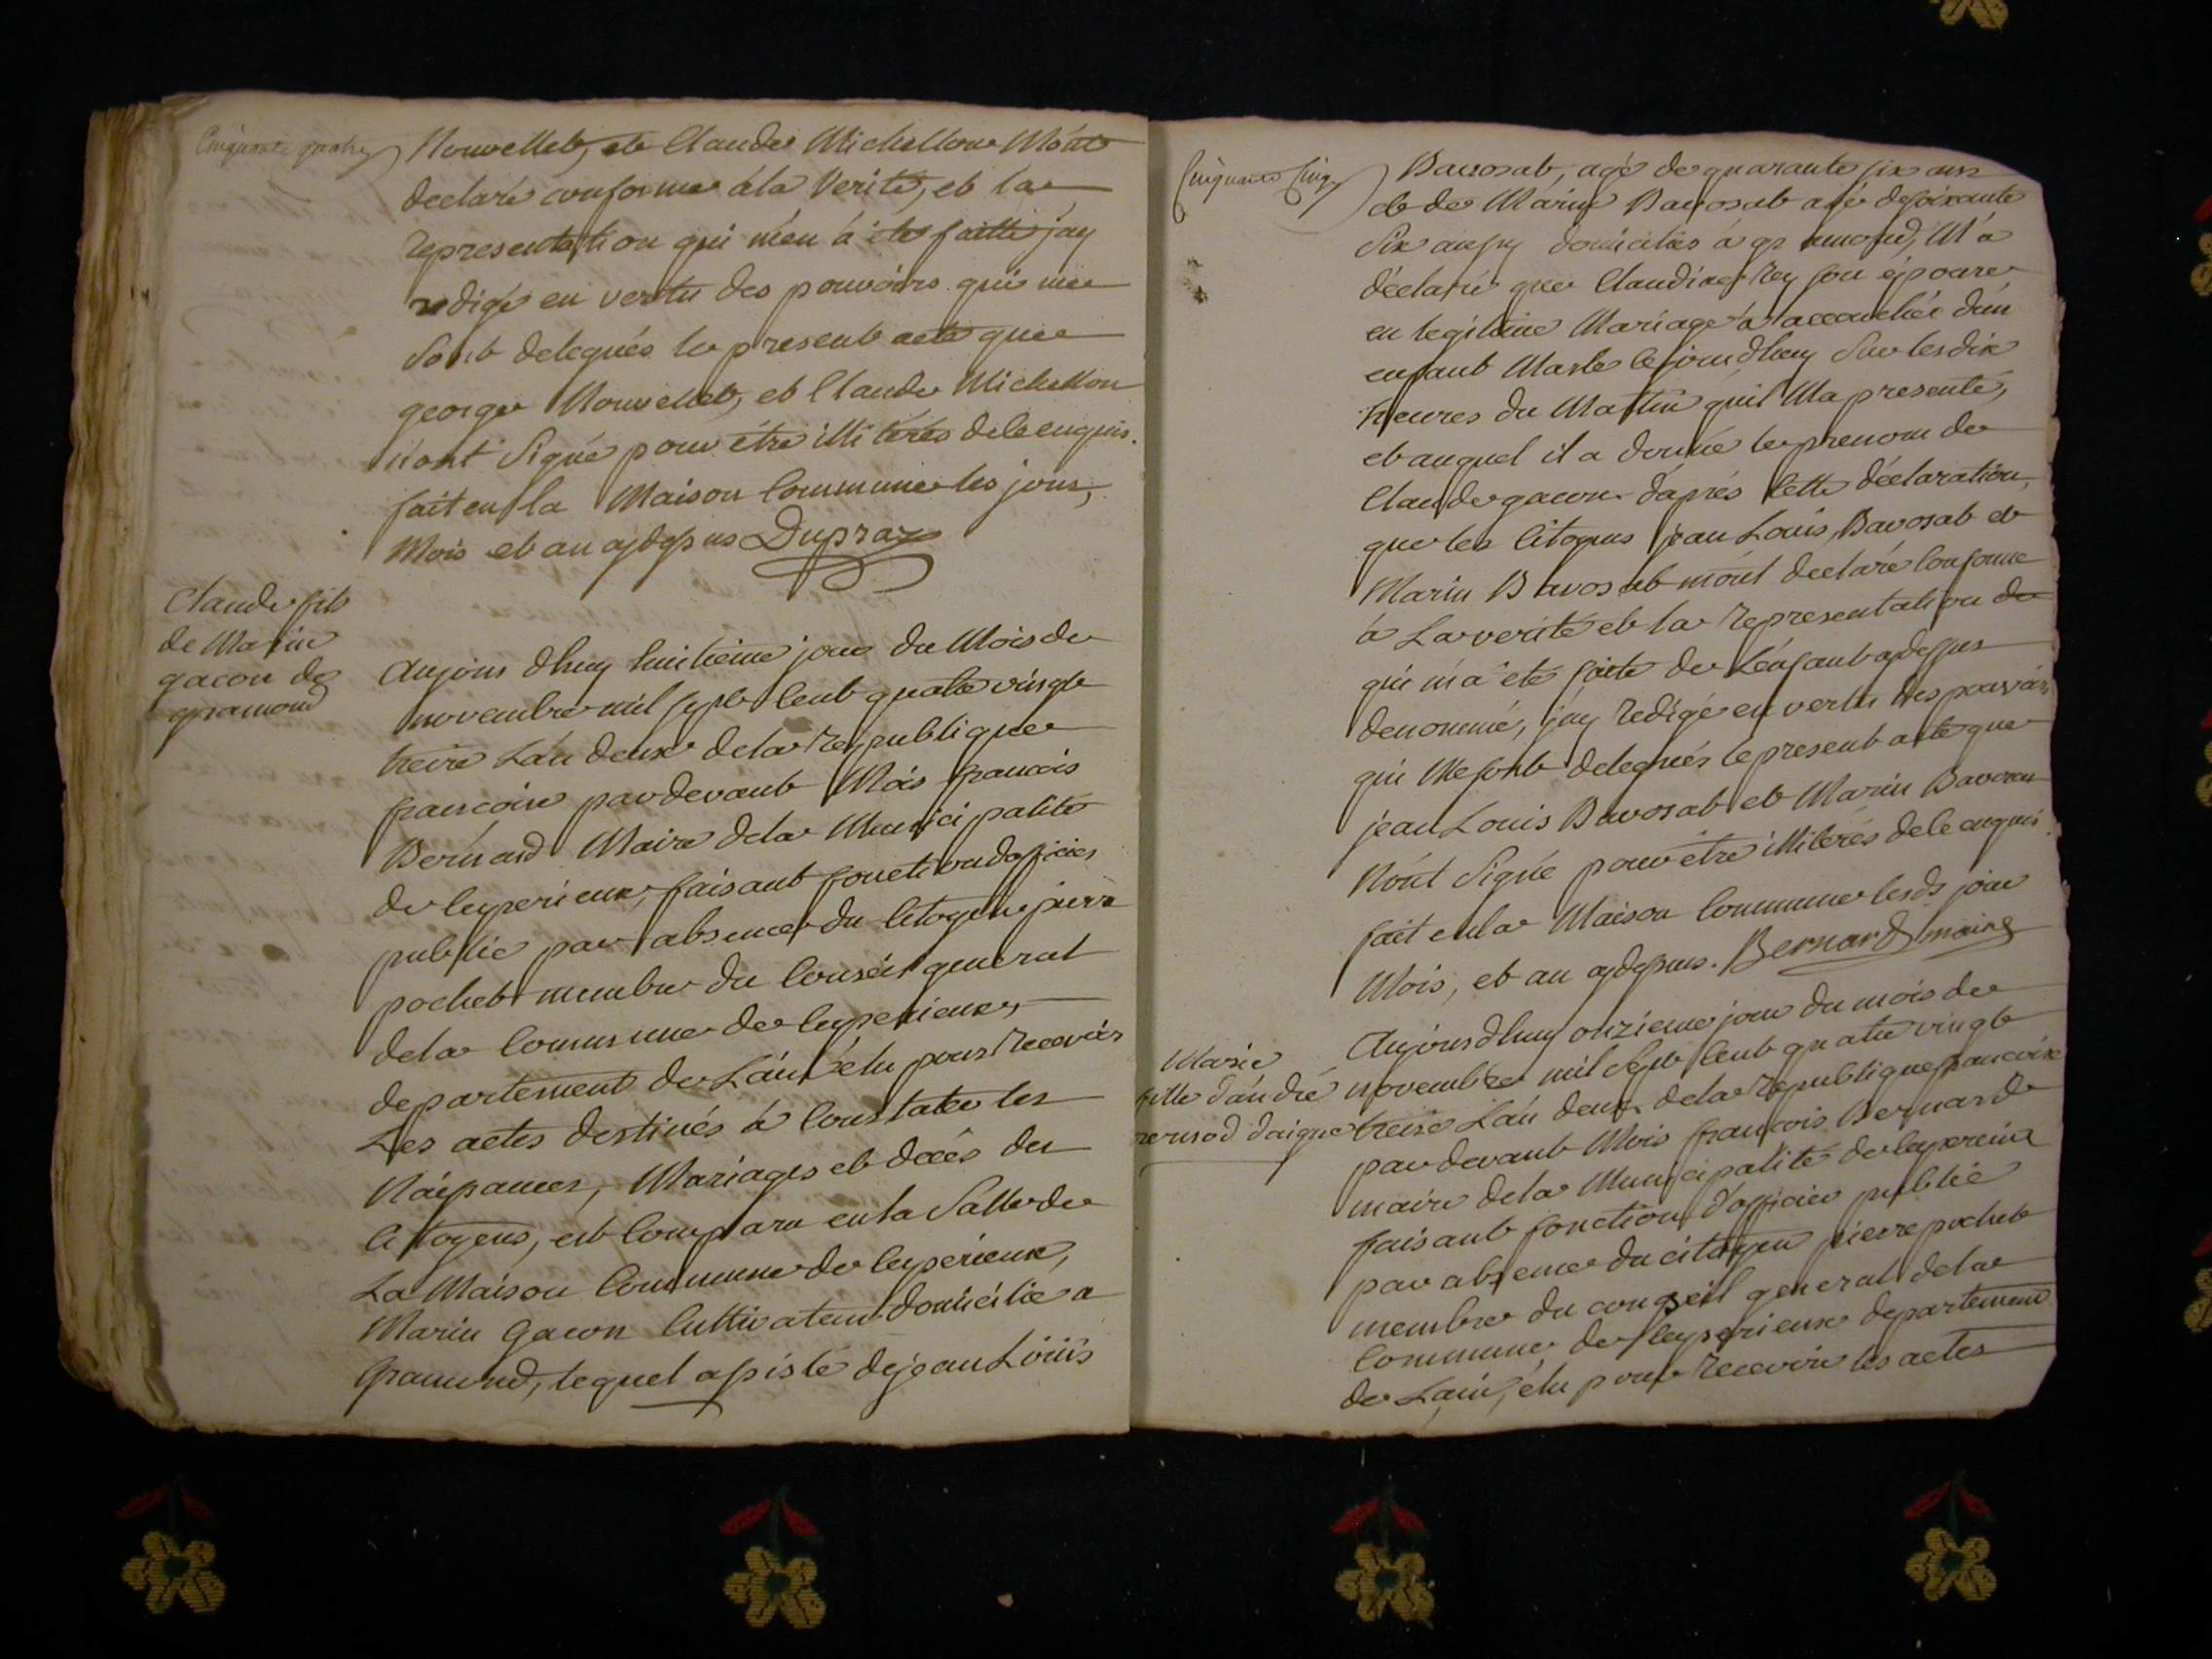 Cinquante quatre
Nouvellet, et Claude Michellon M'ont
declaré conforme á la Verité, et la
representation qui m'en á été faitte j'ay
redigé en vertu des pouvoirs qui me
sont delegués le present acte que
george Nouvellet, et Claude Michellon
n'ont signé pour étre illiterés de ce enquis.
fait en la Maison Commune les jour,
Mois et an cydessus Dupraz
Claude fils
de Marin
gacon de
gramond
Aujours dhuy huitieme jour du Mois de
novembre mil sept Cent quatre vingt
treize L'an deux de la Republique
francoise pardevant Mois francois
Bernard Maire de la Municipalité
de Ceyzerieux, faisant fonction d'officier
public par absence du Citoyen pierre
pochet membre du Conseil general
de la Commune de Ceyzerieux,
departement de L'ain élu pour Recevoir
Les actes destinés á Constater les
Naissances, Mariages et décés des
Citoyens, est Comparu en la Salle de
La Maison Commune de Ceyzerieux,
Marin Gacon Cultivateur domicilié a
gramond, lequel assisté de jean Louis
Cinquante Cinq
Bavosat, agé de quarante six ans
et de Marin Bavosat agé de soixante
six ans domiciliés á gramond, M'a
déclaré que Claudine Rey son épouse
en legitime Mariage á accouchée d'un
enfant Masle cejourdhuy Sur les dix
heures du Mattin quil Ma presenté,
et auquel il a donné le prenom de
Claude gacon. d'aprés Cette déclaration,
que les Citoyens jean Louis Bavosat et
Marin Bavosat m'ont declaré Conforme
á La verité et la Representation de
qui m'a été faite de L'enfant cydessus
denommé, j'ay Redigé en vertu des pouvoirs
qui Me sont delegués le present acte que
jean Louis Bavosat et Marin Bavosat
N'ont Signé pour étre illiterés de ce enquis.
fait en la Maison Commune lesds jour
Mois, et an cydessus. Bernard maire
Marie
fille d'andré
d'aigne
Aujourdhuy onzieme jour du mois de
novembre mil sept Cent quatre vingt
treize L'an deux de la Republique francoise
pardevant Mois francois Bernard
maire de la Municipalité de Ceyzerieux
faisant fonction d'officier publié
par absence du citoyen pierre pochet
membre du conseil general de la
Commune de Ceyzerieux departement
de L'ain, élu pour Recevoir les actes